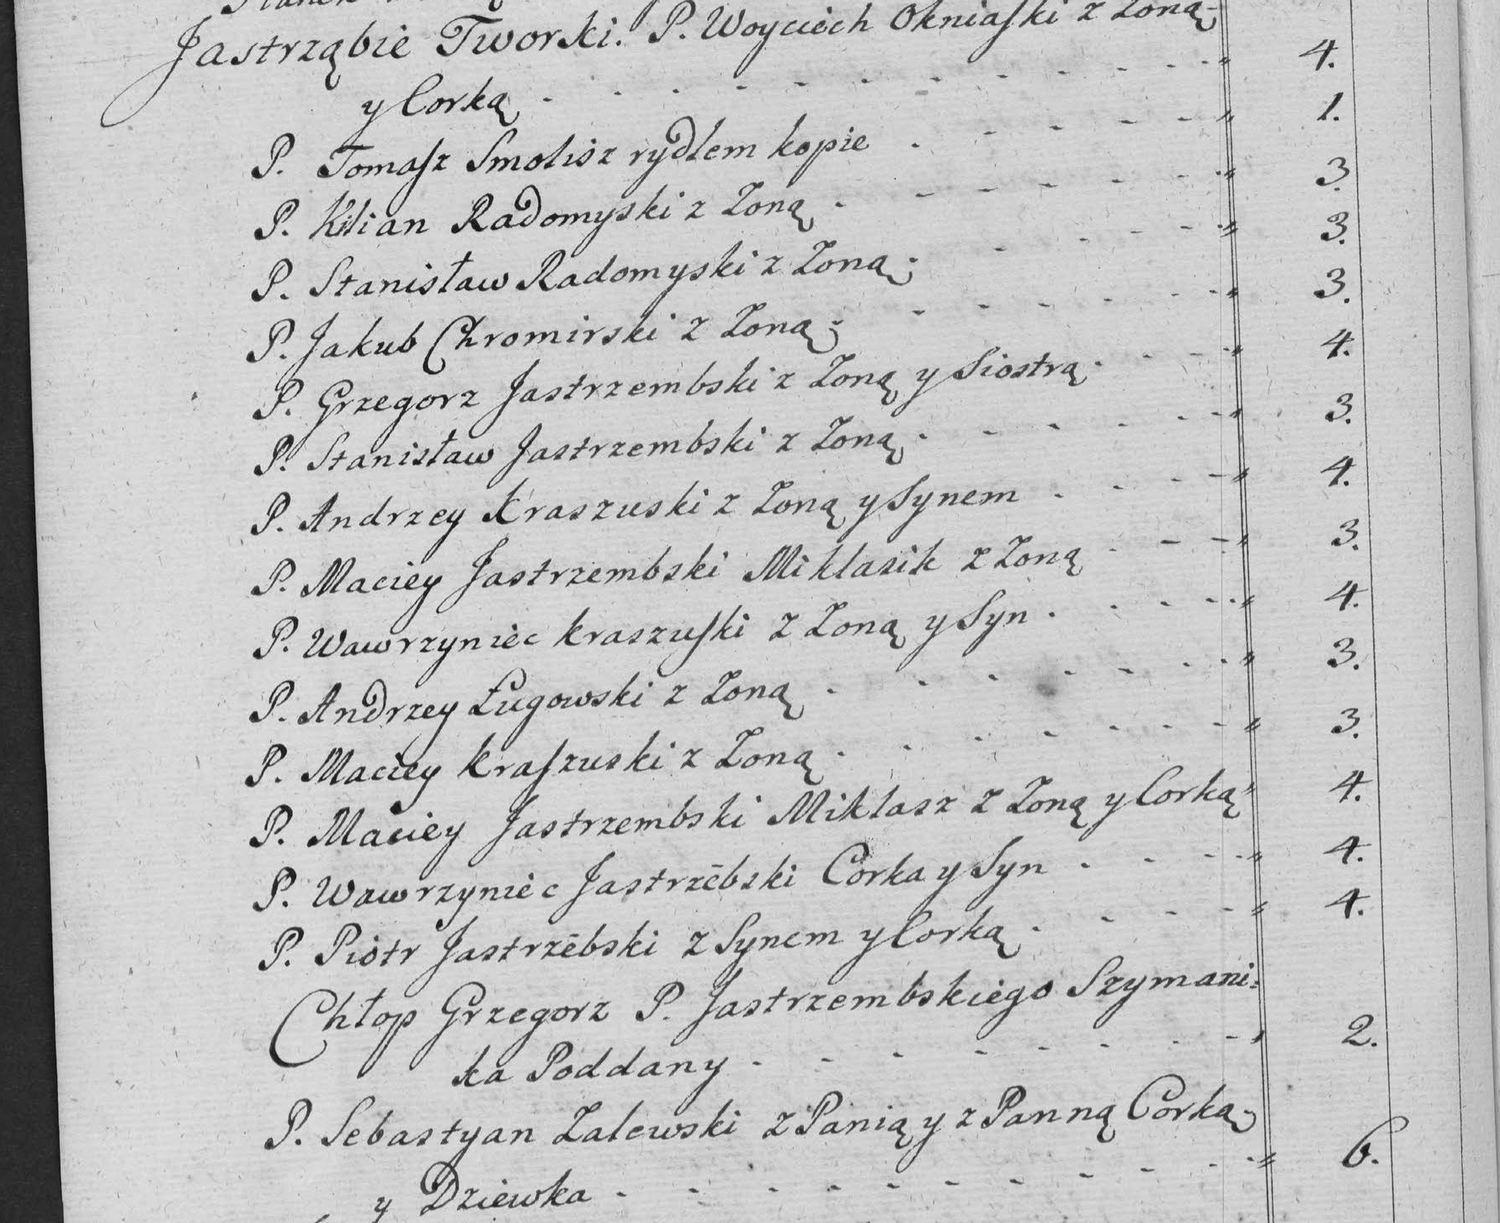 Jastrząbie Tworski. P. Woyciech Okniaſki z Zoną
y Corką 4.
P. Tomaſz Smolisz rydlem kopie 1.
P. Kilian Radomyski z Zoną 3.
P. Stanisław Radomyski z Zoną 3.
P. Jakub Chromirski z Zoną 3.
P. Grzegorz Jastrzembski z Zoną y Siostrą 4.
P. Stanisław Jastrzembski z Zoną 3.
P. Andrzey Kraszuski z Zoną y Synem 4.
P. Maciey Jastrzembski Miklasik z Zoną 3.
P. Wawrzyniec Kraszuſki z Zoną y Syn 4.
P. Andrzey Ługowski z Zoną 3.
P. Maciey Kraſzuski z Zoną 3.
P. Maciey Jastrzembski Miklasz z Zoną y Corką 4.
P. Wawrzyniec Jastrzēbski Corka y Syn 4.
P. Piotr Jastrzēbski z Synem y Corką 4.
Chłop Grzegorz P. Jastrzembskiego Szymani:
ka Poddany 2.
P. Sebastyan Zalewski z Panią y z Panną Corką
y Dziewka 6.